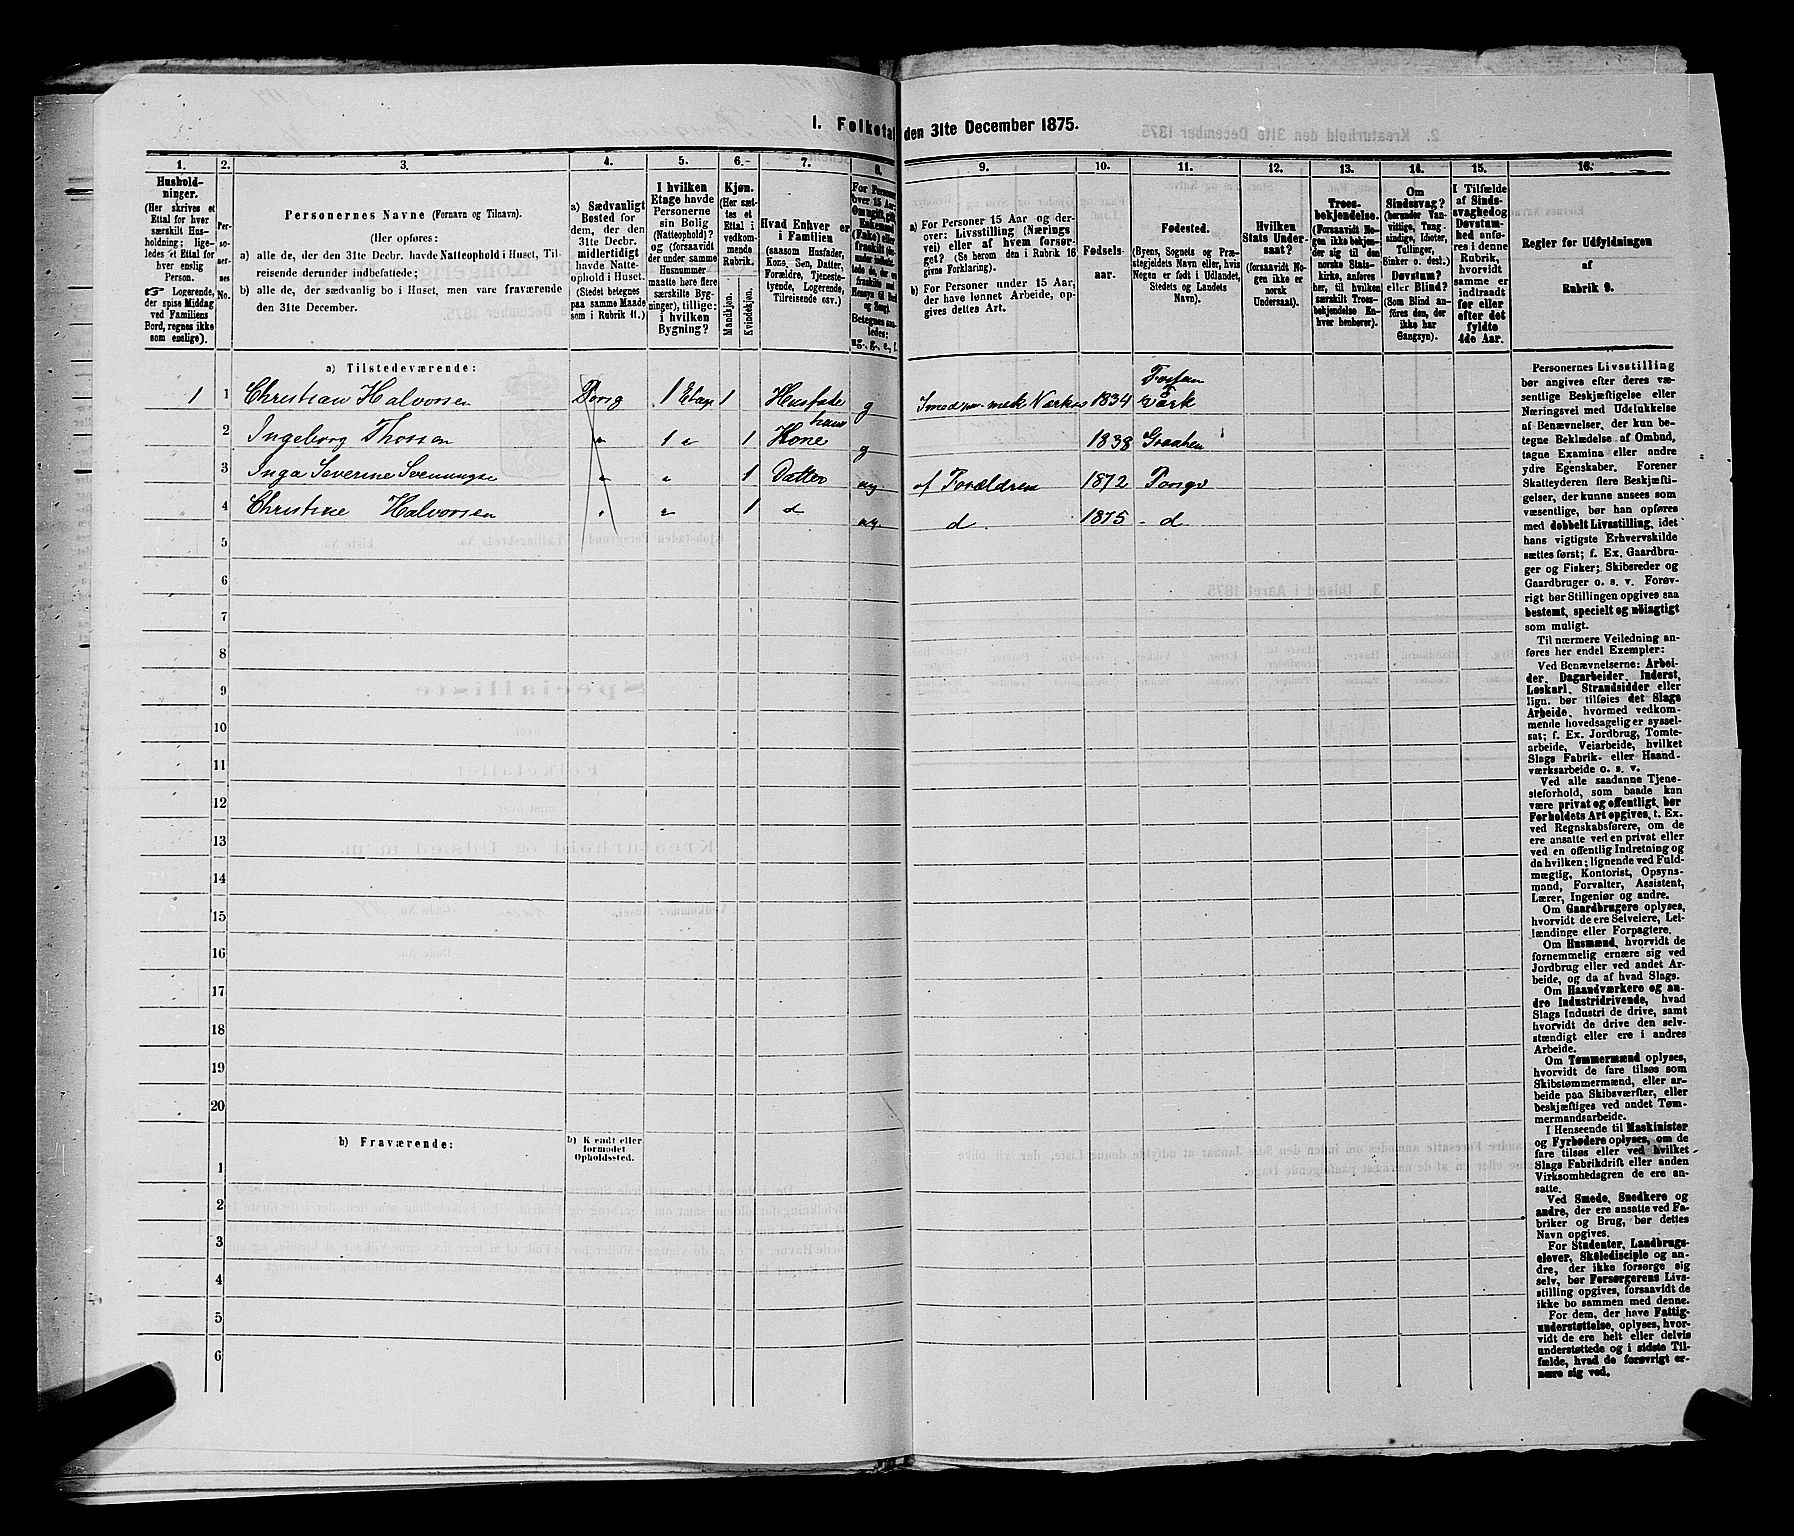 1. Folketal den 31te December 1875.
1. 2. 3. 4. 5. 6. 7. 8. 9. 10. 11. 12. 13. 14. 15. 16.
Husholdninger.
(Her skrives et
Ettal for hver
særskilt Husholdning;
ligeledes et Ettal for
hver enslig
Person.
☞ Logerende,
der spise Middag
ved Familiens
Bord, regnes ikke
som enslige).
Personernes No.
Personernes Navne (Fornavn og Tilnavn).
(Her opføres:
a) alle de, der den 31te Decbr. havde Natteophold i Huset, Tilreisende derunder indbefattede;
b) alle de, der sædvanlig bo i Huset, men vare fraværende
den 31te December.
a) Sædvanligt
Bosted for
dem, der den
31te Decbr.
midlertidigt
havde Natteophold
i Huset.
(Stedet betegnes
paa samme Maade
som i Rubrik 11.)
I hvilken
Etage havde
Personerne
sin Bolig
(Natteophold)?
og (forsaavidt
der under samme
Husnummer
maatte høre flere
særskilte Bygninger),
tillige:
i hvilken
Bygning?
Kjøn.
(Her sættes
et
Ettal i
vedkommende
Rubrik.
Mandkjøn.
Kvindekjøn.
Hvad Enhver er
i Familien
(saasom Husfader,
Kone, Søn, Datter,
Forældre, Tjenestetyende,
Logerende,
Tilreisende osv.)
a) For Personer 15 Aar og derover:
Livsstilling (Næringsvei)
eller af hvem forsørget?
(Se herom den i Rubrik 16
givne Forklaring).
b) For Personer under 15 Aar,
der have lønnet Arbeide, opgives
dettes Art.
Fødselsaar.
Fødested.
(Byens, Sognets og Præstegjeldets
Navn eller, hvis
Nogen er født i Udlandet,
Stedets og Landets
Navn).
Hvilken
Stats Undersaat?
(forsaavidt Nogen
ikke er
norsk
Undersaat).
Troesbekjendelse.
(Forsaavidt Nogen
ikke bekjender
sig til den
norske Statskirke,
anføres
her, til hvilken
særskilt Troesbekjendelse
Enhver
henhører).
Om
Sindssvag?
(herunder Vanvittige,
Tungsindige,
Idioter,
Tullinger,
Sinker o. desl.)
Døvstum?
eller Blind?
(Som Blind anføres
den, der
ikke har
Gangsyn).
I Tilfælde
af Sindssvaghed
og
Døvstumhed
anføres
i denne
Rubrik,
hvorvidt
samme er
indtraadt
før eller
efter det
fyldte
4de Aar.
Regler for Udfyldningen
af
Rubrik 9.
a) Tilstedeværende:
1 1 Christian Halvorsen Porsg 1 Etage 1 g mek 1834
2 Ingeborg Thossen " 1 " 1 Kone g 1838
3 Inga Severine " " 1 Datter ug af Forældrene 1872 Porsgr
4 Christine Halvorsen " " 1 d ug d 1875 d
5
6
7
8
9
10
11
12
13
14
15
16
17
18
19
20
b) Fraværende:
b) Kjendt eller
formodet
Opholdssted.
1
2
3
4
5
6
Personernes Livsstilling
bør angives efter deres væsentlige
Beskjæftigelse eller
Næringsvei med Udelukkelse
af Benævnelser, der kun betegne
Beklædelse af Ombud,
tagne Examina eller andre
ydre Egenskaber. Forener
Skatteyderen flere Beskjæftigelser,
der kunne ansees som
væsentlige, bør han opføres
med dobbelt Livsstilling, idet
hans vigtigste Erhvervskilde
sættes først; f. Ex. Gaardbruger
og Fisker; Skibsreder og
Gaardbruger o. s. v. Forøvrigt
bør Stillingen opgives saa
bestemt, specielt og nöiagtigt
som muligt.
Til nærmere Veiledning anføres
her endel Exempler:
Ved Benævnelserne: Arbeider,
Dagarbeider, Inderst,
Løskarl, Strandsidder eller
lign. bør tilføies det Slags
Arbeide, hvormed vedkommende
hovedsagelig er sysselsat;
f. Ex. Jordbrug, Tomtearbeide,
Veiarbeide, hvilket
Slags Fabrik- eller Haandværksarbeide
o. s. v.
Ved alle saadanne Tjenesteforhold,
som baade kan
være privat og offentligt, bør
Forholdets Art opgives, t. Ex.
ved Regnskabsførere, om de
ere ansatte ved en privat eller
ved en offentlig Indretning og
da hvilken; lignende ved Fuldmægtig,
Kontorist, Opsynsmand,
Forvalter, Assistent,
Lærer, Ingeniør og andre.
Om Gaardbrugere oplyses,
hvorvidt de ere Selveiere, Leilændinge
eller Forpagtere.
Om Husmænd, hvorvidt de
fornemmelig ernære sig ved
Jordbrug eller ved andet Arbeide,
og da af hvad Slags.
Om Haandværkere og andre
Industridrivende, hvad
Slags Industri de drive, samt
hvorvidt de drive den selvstændigt
eller ere i andres
Arbeide.
Om Tømmermænd oplyses,
hvorvidt de fare tilsøs som
Skibstømmermænd, eller arbeide
paa Skibsværfter, eller
beskjæftiges ved andet Tømmermandsarbeide.
I Henseende til Maskinister
og Fyrbødere oplyses, om de
fare tilsøs eller ved hvilket
Slags Fabrikdrift eller anden
Virksomhedsgren de ere ansatte.
Ved Smede, Snedkere og
andre, der ere ansatte ved Fabriker
og Brug, bør dettes
Navn opgives.
For Studenter, Landbrugselever,
Skoledisciple og andre,
der ikke forsørge sig
selv, bør Forsørgerens Livsstilling
opgives, forsaavidt de
ikke bo sammen med denne.
For dem, der have Fattigunderstøttelse,
oplyses, hvorvidt
de ere helt eller delvis
understøttede og i sidste Tilfælde,
hvad de forøvrigt ernære
sig ved.